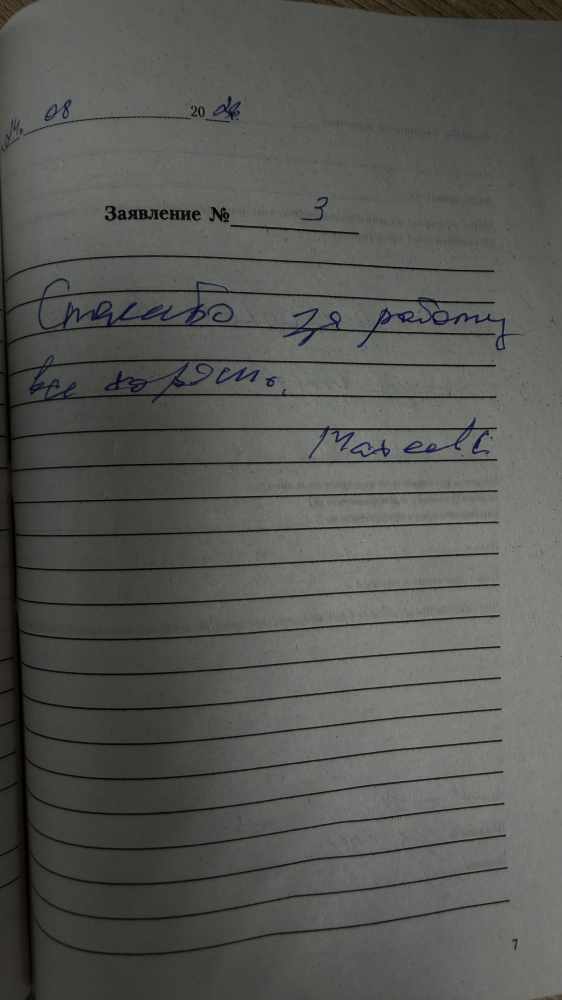 24. 08 20
Заявление № 3
Спасибо за работу
все хорошо.
7